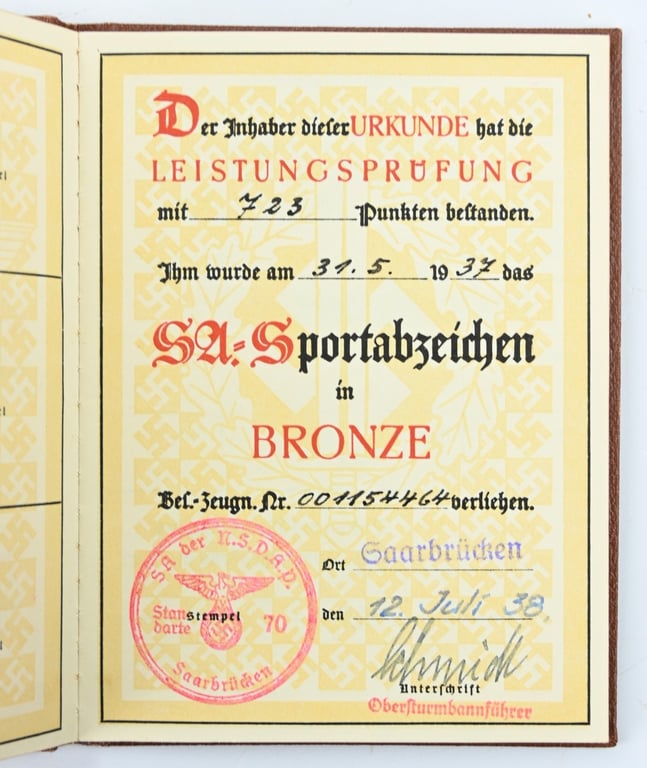 Der Inhaber dieser URKUNDE hat die
LEISTUNGSPRÜFUNG
mit 723 Punkten bestanden.
Ihm wurde am 31. 5. 1937 das
SA.-Sportabzeichen
in
BRONZE
Bes.-Zeugn. Nr. 001154464 verliehen.
Ort Saarbrücken
den 12. Juli 38.
Schmidt
Unterschrift
Obersturmbannführer
SA der N.S.D.A.P.
Standarte 70
Stempel
Saarbrücken